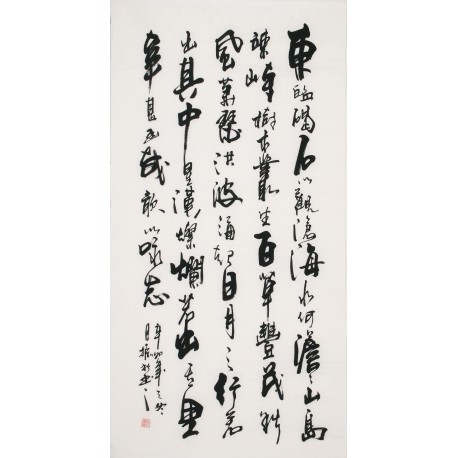 東臨碣石以觀滄海水何澹々山島
竦峙樹木叢生百草豐茂秋
風蕭瑟洪波涌起日月之行若
出其中星漢燦爛若出其里
幸甚至哉歌以咏志
年之冬
月